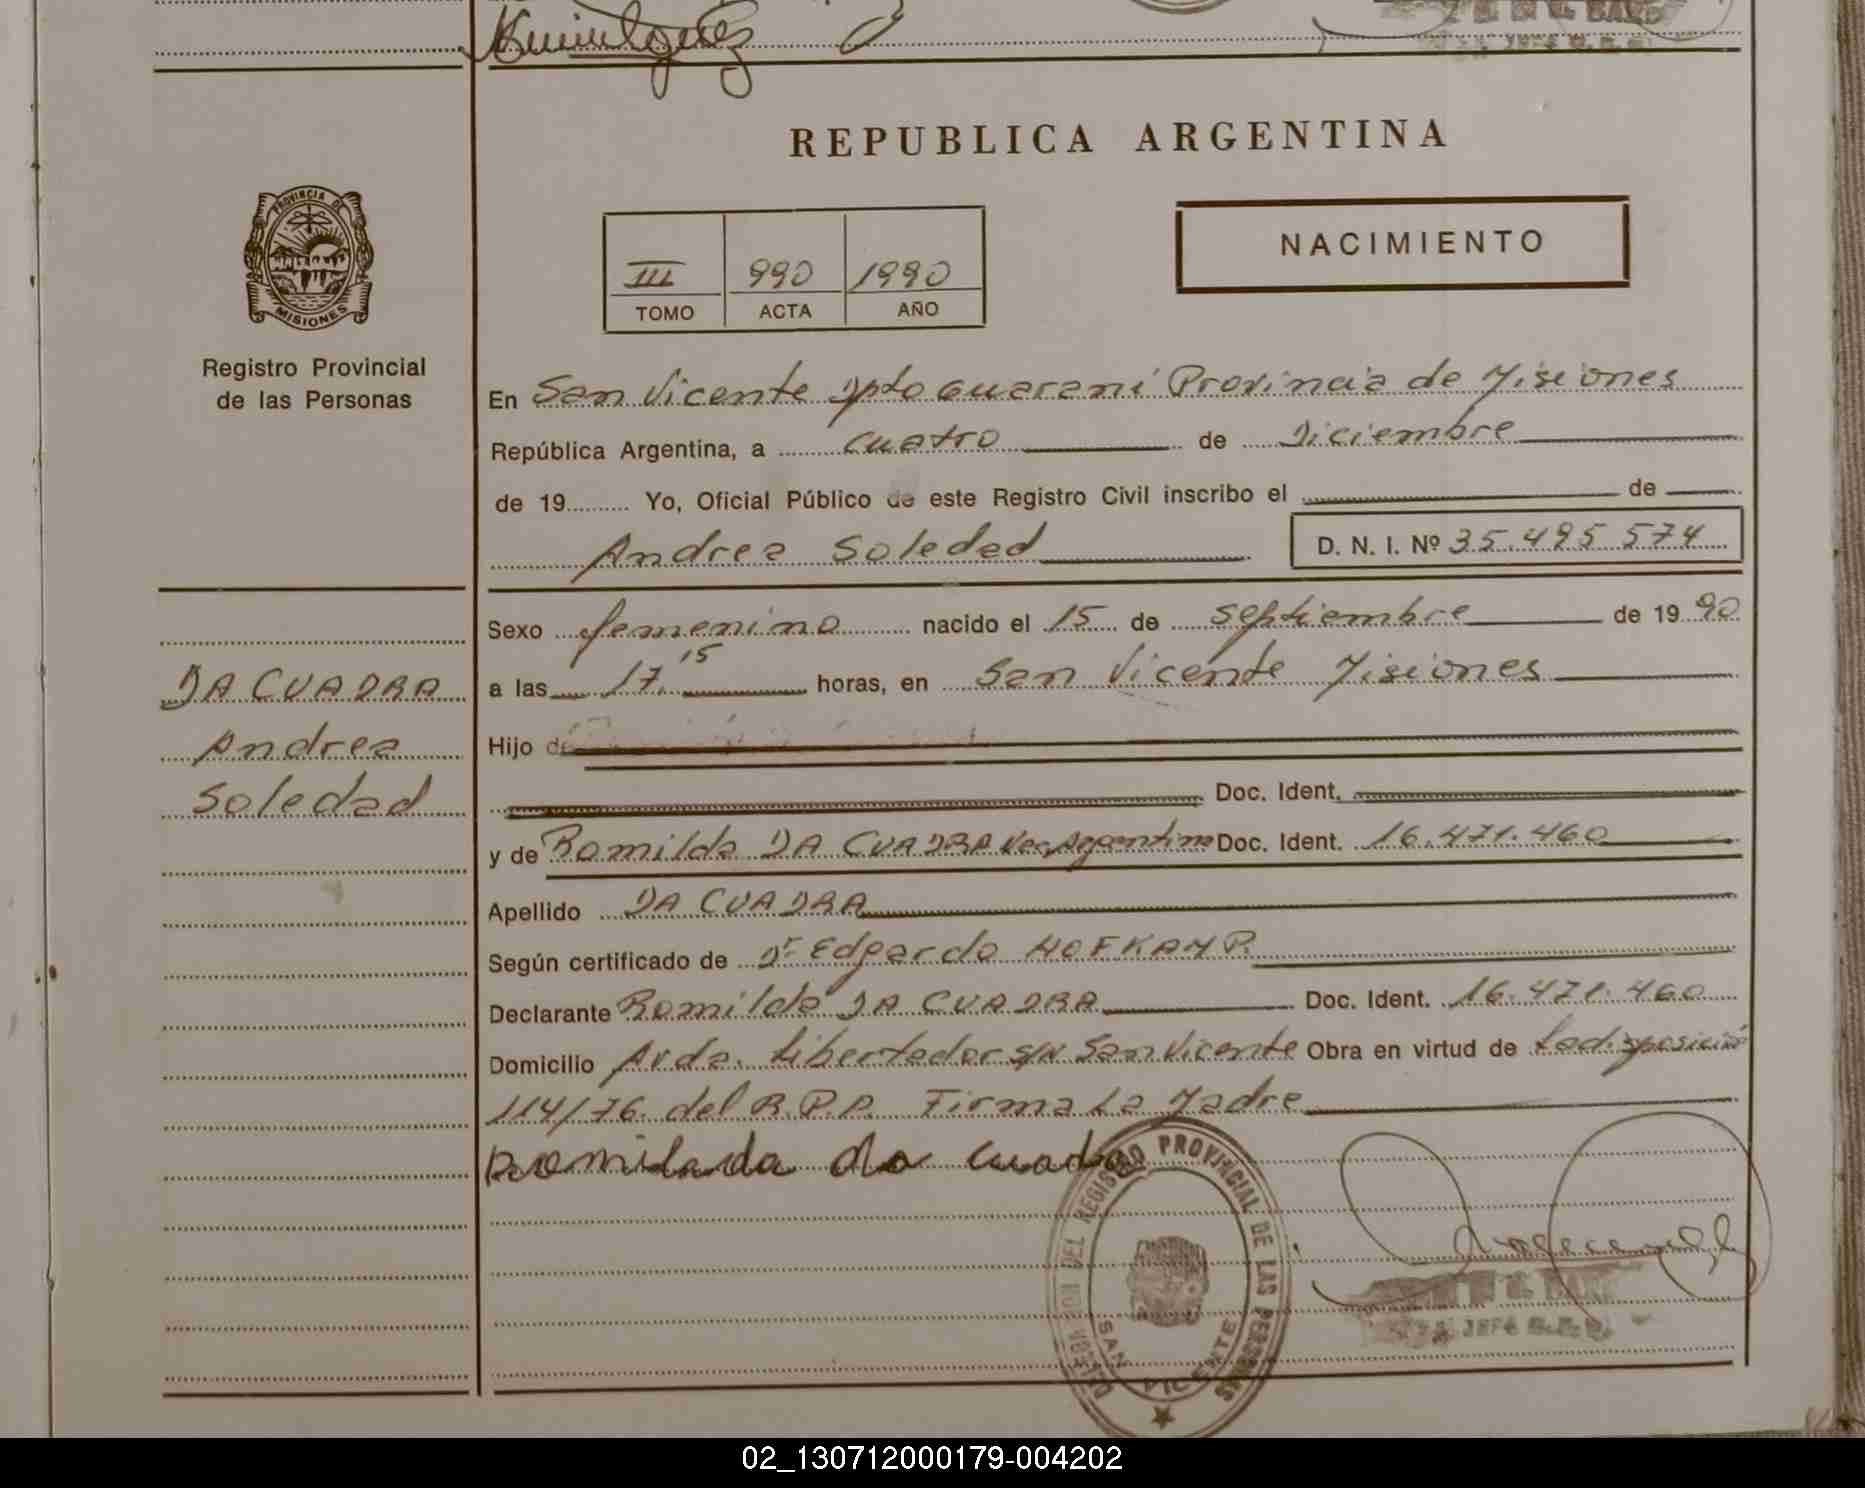 REPUBLICA ARGENTINA
PROVINCIA DE
MISIONES
Registro Provincial
de las Personas
III 990 1990
TOMO ACTA AÑO
NACIMIENTO
En San Vicente Dpto Guaraní Provincia de Misiones
República Argentina, a cuatro de Diciembre
de 19 Yo, Oficial Público de este Registro Civil inscribo el de
Andrea Soledad D. N. I. Nº 35.495 574
Sexo femenino nacido el 15 de septiembre de 19 90
a las 17,15 horas, en San Vicente Misiones
Hijo de
Doc. Ident.
y de Romilda DA CUADRA Nac. Argentina Doc. Ident. 16.471.460
Apellido DA CUADRA
Según certificado de Dr Edgardo HOFKAMP.
Declarante Romilda DA CUADRA Doc. Ident. 16.471.460
Domicilio Avda. Libertador s/n San Vicente Obra en virtud de La disposición
114/76. del R.P.P. Firma La Madre
DA CUADRA
Andrea
Soledad
Romilda da cuadra
DEL REGISTRO PROVINCIAL DE LAS PERSONAS
SAN VICENTE
02_130712000179-004202